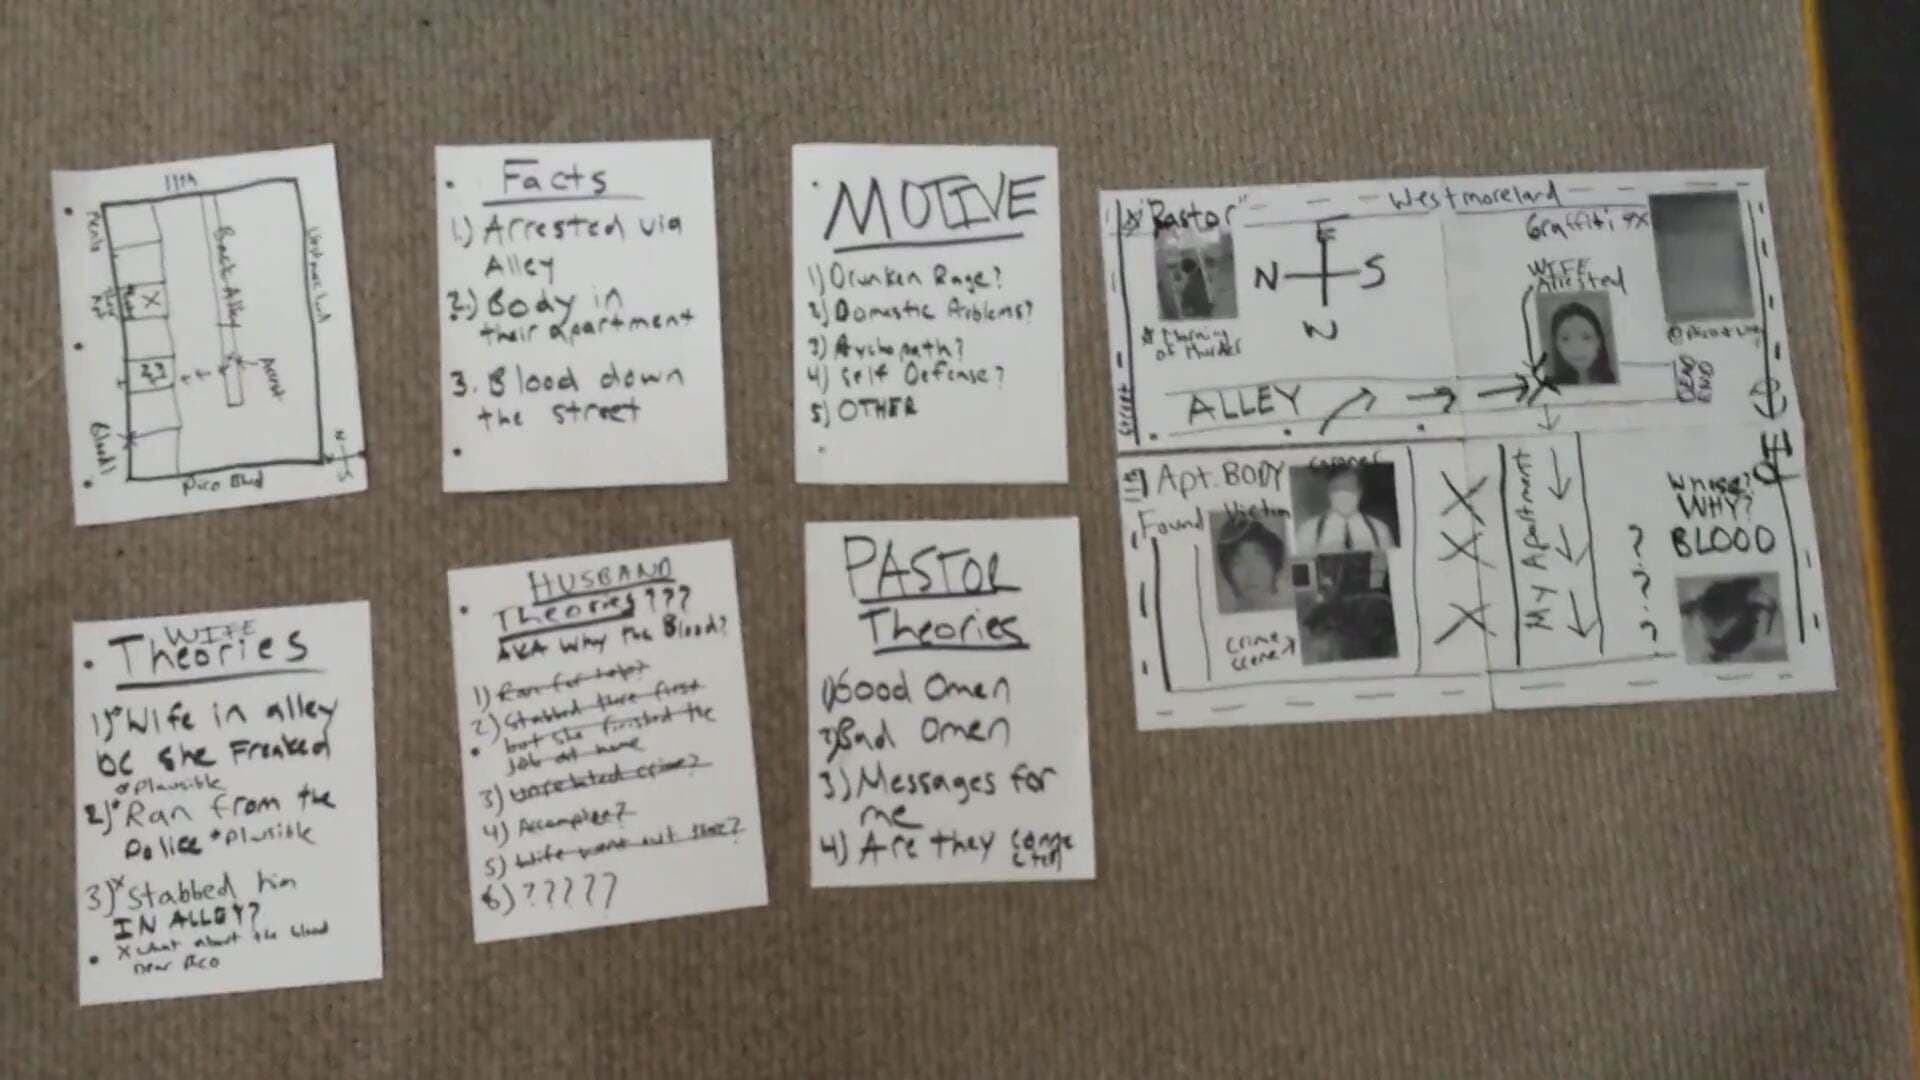 11th
Back Alley
Arrest
X
Blood!
Pico Blvd
N
S
Facts
1.) Arrested via
Alley
2.) Body in
their apartment
3. Blood down
the street
MOTIVE
1) Drunken Rage?
2) Domestic Problems?
3) Psychopath?
4) Self Defense?
5) OTHER
WIFE
Theories
1) Wife in alley
bc she Freaked
Plausible
2) Ran from the
Police Plausible
3) X Stabbed him
IN ALLEY?
X what about the blood
near Pico
HUSBAND
Theories???
AKA Why the Blood?
1) Ran for help?
2) Stabbed there first
but she finished the
job at home
3) Unrelated crime?
4) Accomplice?
5) Wife went out there?
6) ?????
PASTOR
Theories
1) Good Omen
2) Bad Omen
3) Messages for
me
4) Are they
"Pastor"
Westmoreland
Morning
of Murder
E
N S
W
Graffiti
WIFE
Arrested
DEAD
END
Street
ALLEY
11th
Apt. BODY
Found
Victim
Coroner
Crime
Scene
X
X
X
My Apartment
?
?
?
Whose?
WHY?
BLOOD